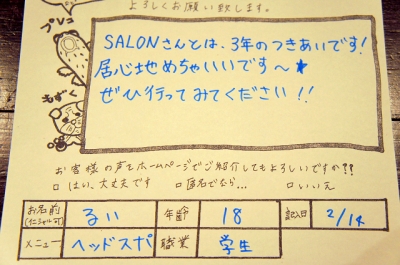 よろしくお願い致します。
プレコ
SALONさんとは、3年のつきあいです!
居心地めちゃいいです〜★
ぜひ行ってみてください!!
もずく
お客様の声をホームページでご紹介してもよろしいですか??
□はい、大丈夫です □匿名でなら… □いいえ
お名前(イニシャル可) るい 年齢 18 記入日 2/14
メニュー ヘッドスパ 職業 学生